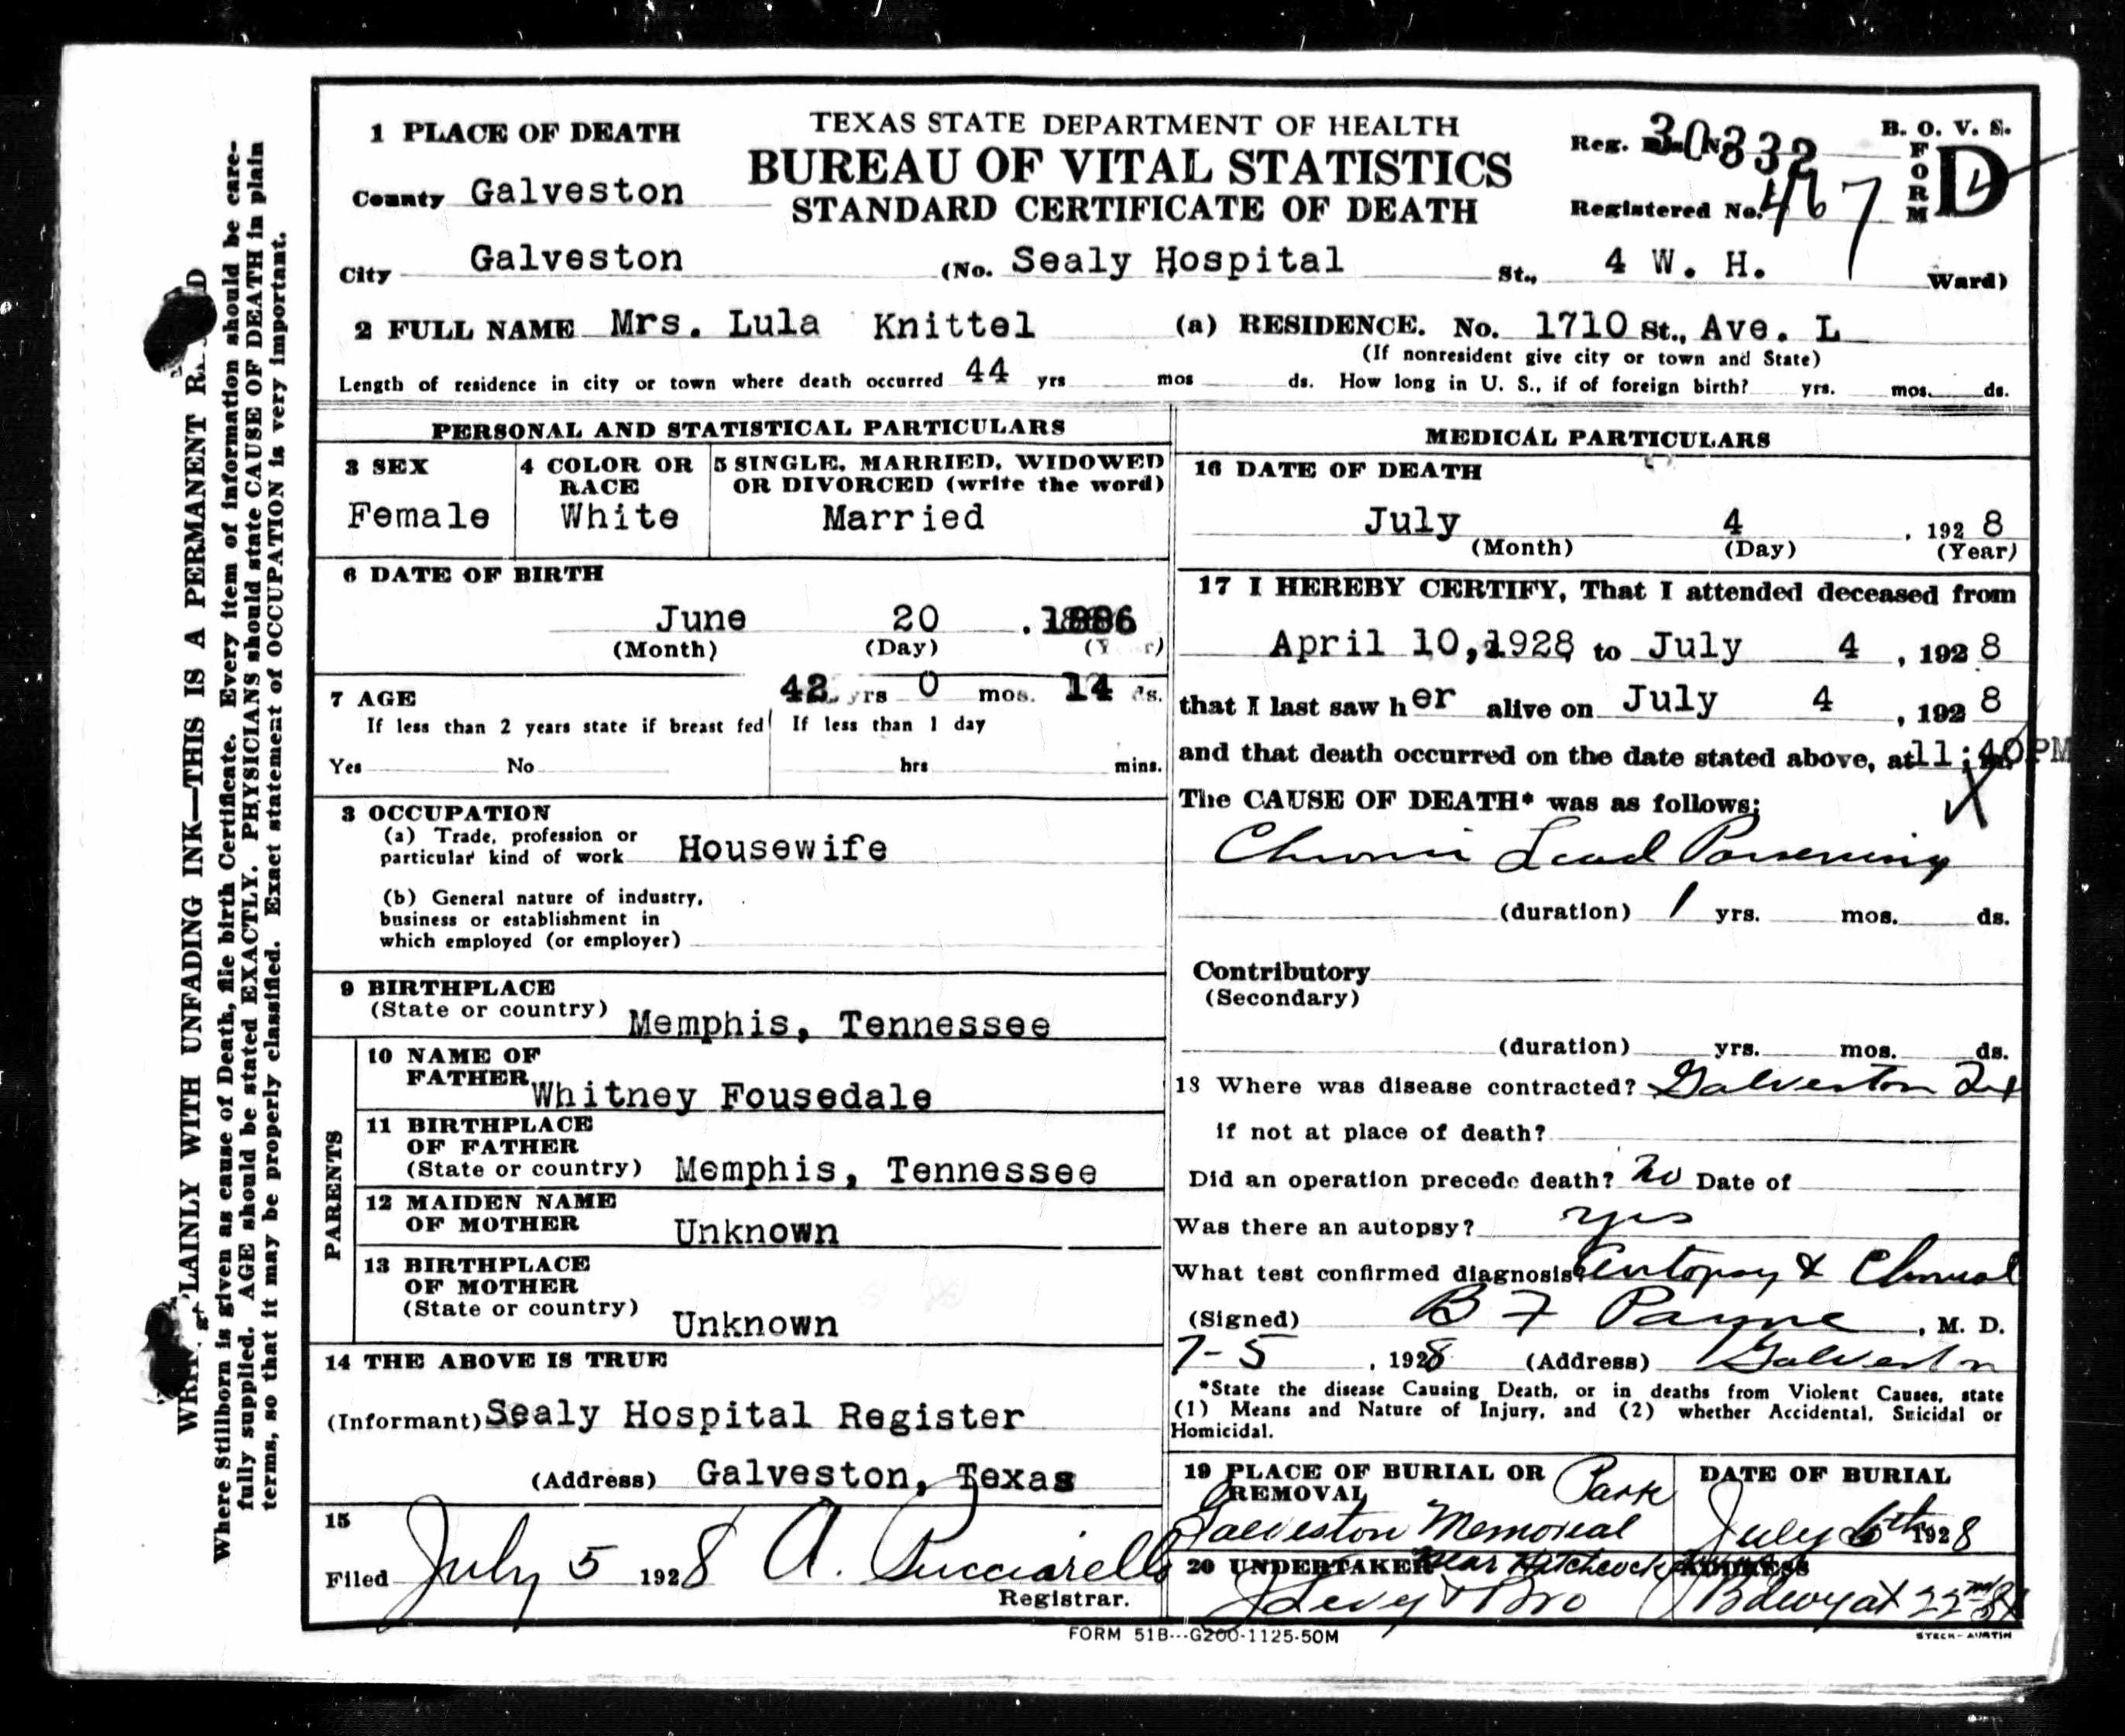 TEXAS STATE DEPARTMENT OF HEALTH
BUREAU OF VITAL STATISTICS
STANDARD CERTIFICATE OF DEATH
Reg. 30832
Registered No. 467
B. O. V. S.
FORM D
1 PLACE OF DEATH
County Galveston
City Galveston (No. Sealy Hospital St., 4 W. H. Ward)
2 FULL NAME Mrs. Lula Knittel (a) RESIDENCE. No. 1710 St., Ave. L
(If nonresident give city or town and State)
Length of residence in city or town where death occurred 44 yrs mos ds. How long in U. S., if of foreign birth? yrs. mos. ds.
PERSONAL AND STATISTICAL PARTICULARS
3 SEX
Female
4 COLOR OR RACE
White
5 SINGLE, MARRIED, WIDOWED
OR DIVORCED (write the word)
Married
6 DATE OF BIRTH
June 20 , 1886
(Month) (Day)
7 AGE 42 yrs 0 mos. 14 ds.
If less than 2 years state if breast fed If less than 1 day
Yes No hrs mins.
8 OCCUPATION
(a) Trade, profession or
particular kind of work Housewife
(b) General nature of industry,
business or establishment in
which employed (or employer)
9 BIRTHPLACE
(State or country) Memphis, Tennessee
PARENTS
10 NAME OF
FATHER Whitney Fousedale
11 BIRTHPLACE
OF FATHER
(State or country) Memphis, Tennessee
12 MAIDEN NAME
OF MOTHER Unknown
13 BIRTHPLACE
OF MOTHER
(State or country) Unknown
14 THE ABOVE IS TRUE
(Informant) Sealy Hospital Register
(Address) Galveston, Texas
15
Filed July 5 1928 A. Pucciarello
Registrar.
MEDICAL PARTICULARS
16 DATE OF DEATH
July 4 , 1928
(Month) (Day) (Year)
17 I HEREBY CERTIFY, That I attended deceased from
April 10, 1928 to July 4 , 1928
that I last saw her alive on July 4 , 1928
and that death occurred on the date stated above, at 11:40PM
The CAUSE OF DEATH* was as follows:
Chronic Lead Poisening
(duration) 1 yrs. mos. ds.
Contributory
(Secondary)
(duration) yrs. mos. ds.
18 Where was disease contracted? Galveston Tex
if not at place of death?
Did an operation precede death? No Date of
Was there an autopsy? yes
What test confirmed diagnosis? Autopsy & Clinical
(Signed) B F Payne , M. D.
7-5 , 1928 (Address) Galveston
*State the disease Causing Death, or in deaths from Violent Causes, state
(1) Means and Nature of Injury, and (2) whether Accidental, Suicidal or
Homicidal.
19 PLACE OF BURIAL OR REMOVAL
Galveston Memorial Park
near Hitchcock
DATE OF BURIAL
July 6th 1928
20 UNDERTAKER
J Levy & Bro
ADDRESS
Bdwy at 22nd St
FORM 51B---G200-1125-50M
STECK-AUSTIN
WRITE PLAINLY WITH UNFADING INK—THIS IS A PERMANENT
Where Stillborn is given as cause of Death, file birth Certificate. Every item of information should be care-
fully supplied. AGE should be stated EXACTLY. PHYSICIANS should state CAUSE OF DEATH in plain
terms, so that it may be properly classified. Exact statement of OCCUPATION is very important.